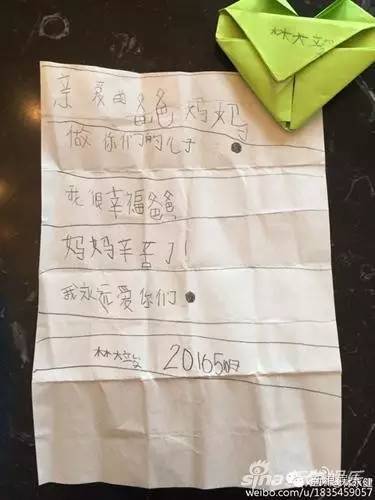 林大竣
亲爱的爸爸妈妈
做你们的儿子
我很幸福爸爸
妈妈辛苦了!
我永远爱你们
林大竣 20165月
sina 新浪娱乐
weibo.com/u/1835459057